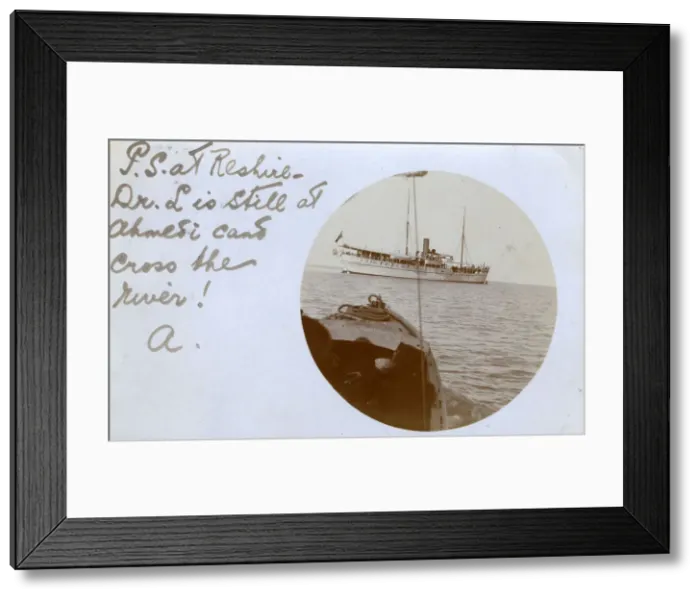 P.S. at Reshire-
Dr. L is still at
Ahmedi cant
cross the
river!
A.